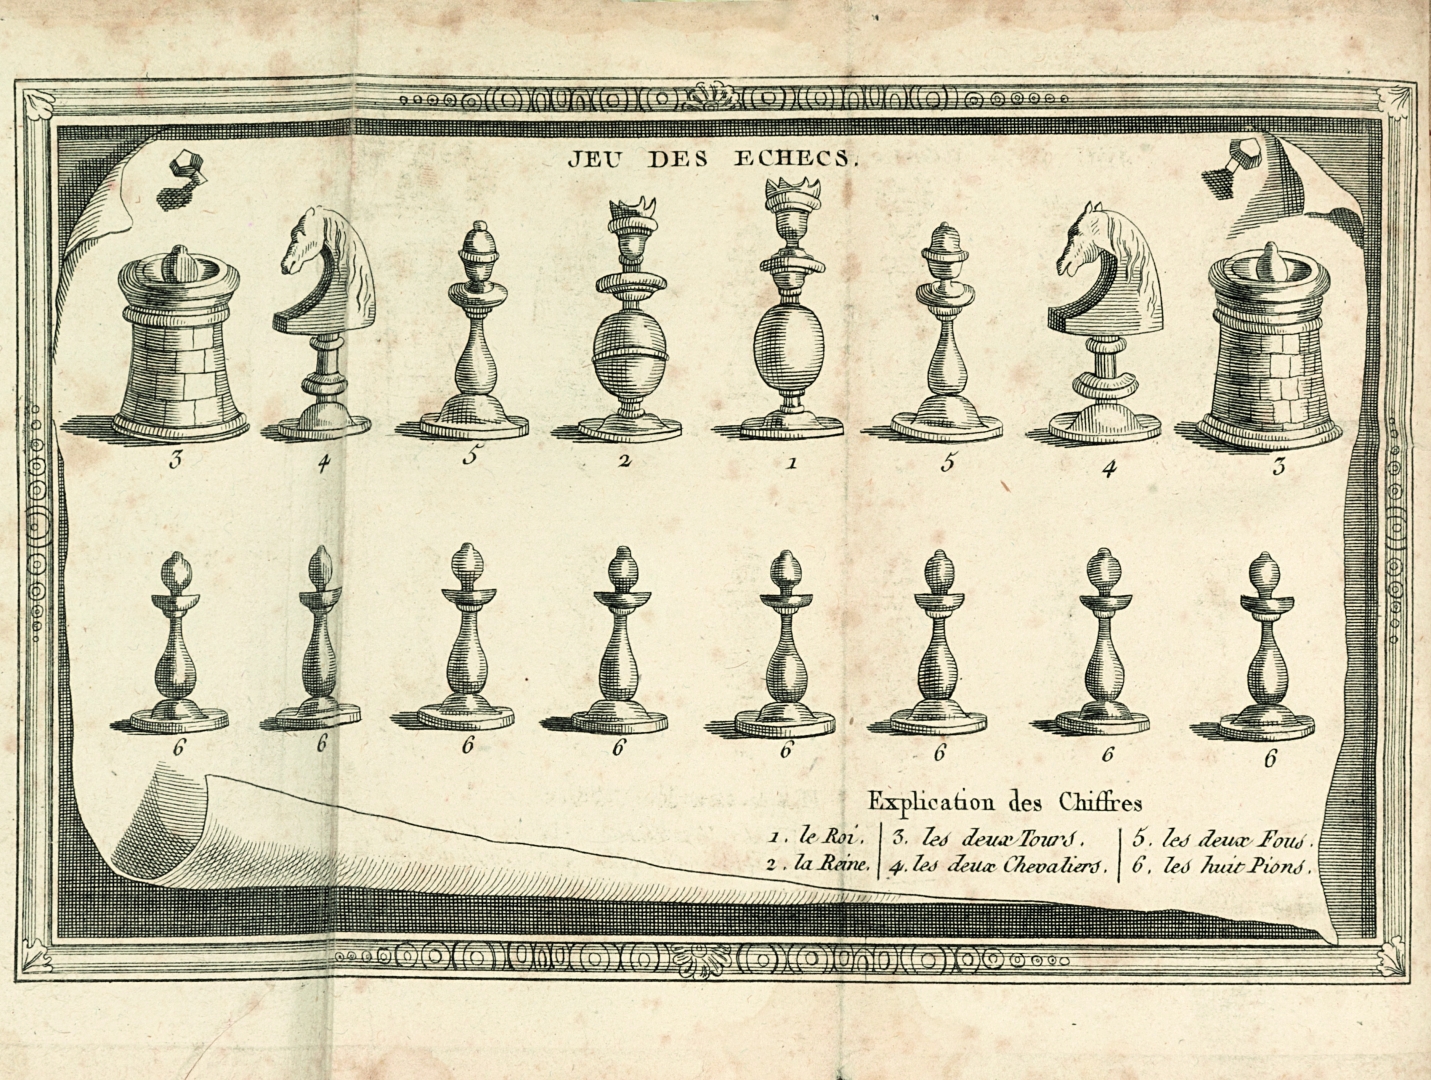 JEU DES ECHECS.
3 4 5 2 1 5 4 3
6 6 6 6 6 6 6 6
Explication des Chiffres
1. le Roi. | 3. les deux Tours. | 5. les deux Fous.
2. la Reine. | 4. les deux Chevaliers. | 6. les huit Pions.